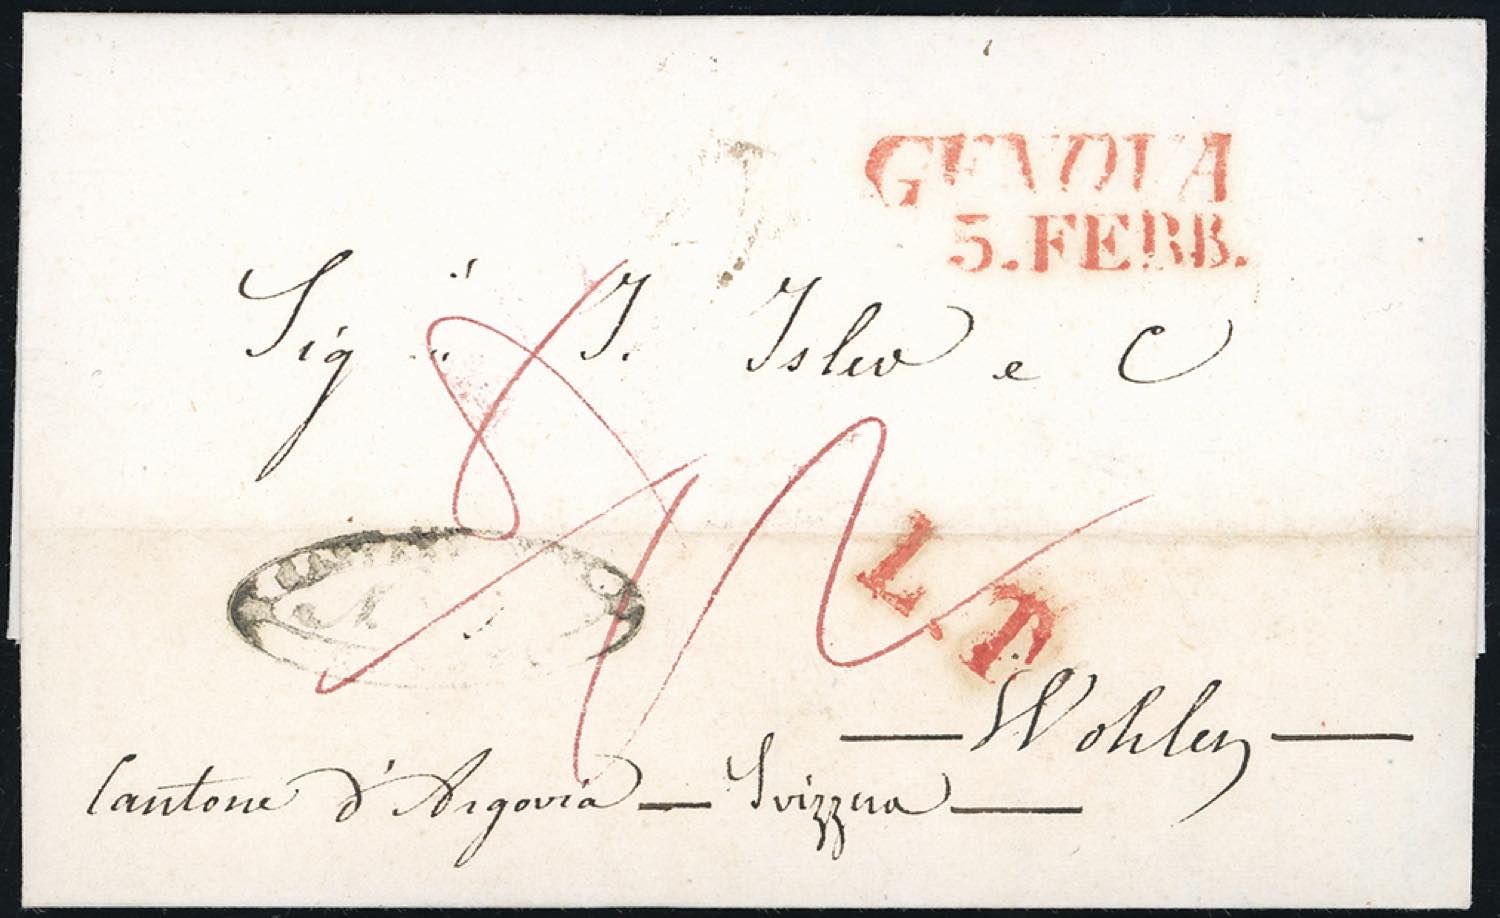 GENOVA
5. FEBB.
Sig.ri J. Isler e C
L. T.
Wohlen
Cantone d'Argovia — Svizzera